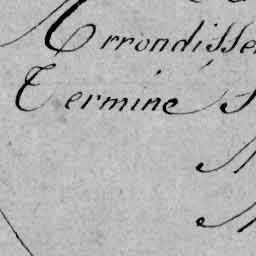 Arrondisse
Termine